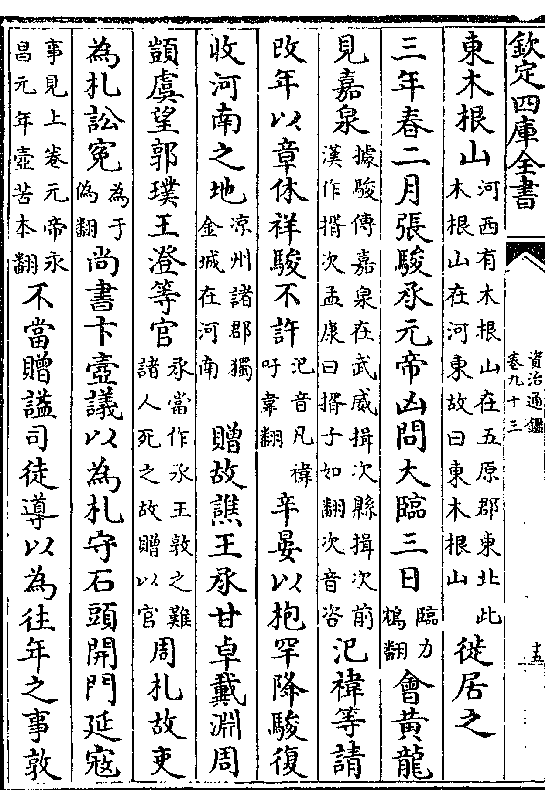 欽定四庫全書
資治通鑑
卷九十三
十五
東木根山河西有木根山在五原郡東北此木根山在河東故曰東木根山徙居之
三年春二月張駿承元帝凶問大臨三日臨力鴆翻會黃龍
見嘉泉據駿傳嘉泉在武威揖次縣揖次前漢作揟次孟康曰揟子如翻次音咨汜禕等請
改年以章休祥駿不許汜音凡禕吁韋翻辛晏以抱罕降駿復
收河南之地凉州諸郡獨金城在河南贈故譙王承甘卓戴淵周
顗虞望郭璞王澄等官承當作氶王敦之難諸人死之故贈以官周札故吏
為札訟寃為于偽翻尚書卞壼議以為札守石頭開門延寇
事見上卷元帝永昌元年壼苦本翻不當贈謚司徒導以為往年之事敦